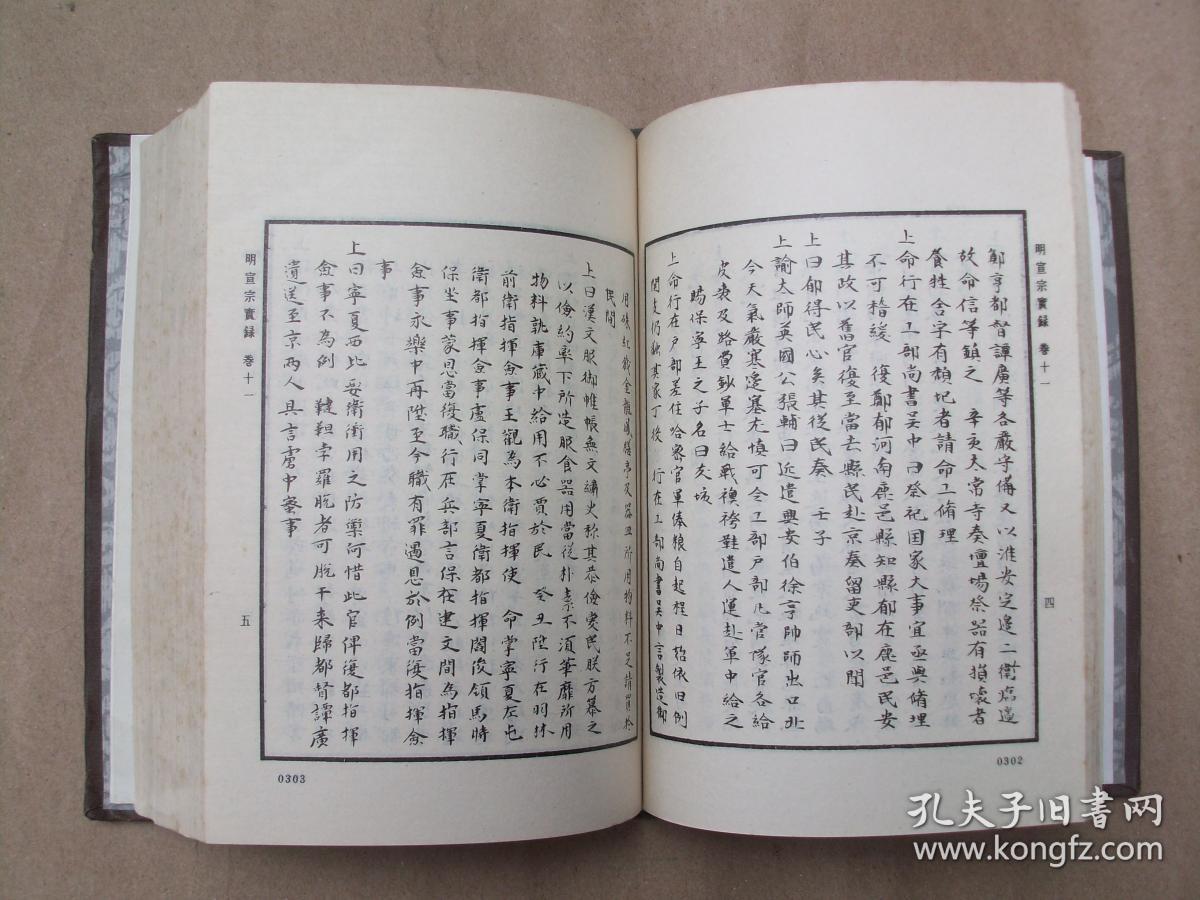 明宣宗實録 卷十一
四
鄣亨都督譚廣等各嚴守備又以淮安定邊二衛临邊
故命信等鎮之 辛亥太常寺奏壇場祭器有損壞者
養牲舍字有頹圯者請命工脩理
上命行在工部尚書吳中曰祭祀国家大事宜亟與脩理
不可稽緩 復鄭郁河南鹿邑縣知縣郁在鹿邑民安
其政以舊官復至當去縣民赴京奏留吏部以聞
上曰郁得民心矣其從民奏 壬子
上諭太師英國公張輔曰近遣興安伯徐亨師師出口北
今天氣嚴寒邊塞尤慎可令工部戶部凡管隊官各給
皮裘及路費鈔軍士給戰襖袴鞋遣人運赴軍中給之
賜保寧王之子名曰
上命行在户部差住哈密官軍俸粮自起程日始依旧例
関支仍給其家丁後 行在工部尚書吳中言製造御
0302
用硃紅戧金龍鳳膳亭及器皿所用物料不足請買於
民間
上曰漢文服御帷帳無文繡史称其恭儉愛民朕方慕之
以儉約率下所造服食器用當從朴素不須華靡所用
物料孰庫藏中給用不必賈於民 癸丑陞行在羽林
前衛指揮僉事王觀為本衛指揮使 命掌寧夏左屯
衛都指揮僉事盧保同掌寧夏衛都指揮閻俊領馬時
保坐事蒙恩當復職行在兵部言保在建文間為指揮
僉事永樂中再陞至今職有罪遇恩於例當復指揮僉
事
上曰寧夏西北要衝用之防禦何惜此官俾復都指揮
僉事不為例 韃靼孛羅脫者可脫干来歸都督譚廣
遣送至京兩人具言虜中蜜事
明宣宗實録 卷十一
五
0303
孔夫子旧書网
www.kongfz.com